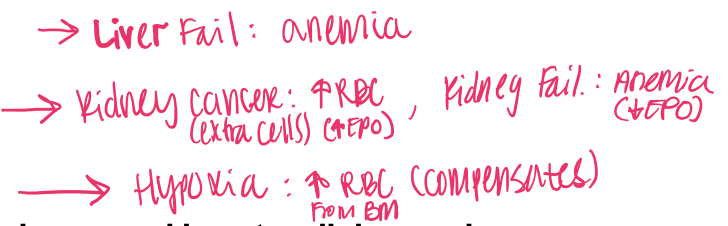 → Liver Fail: anemia
→ Kidney cancer: ↑RBC, Kidney Fail.: Anemia
(extra cells) (↑EPO) (↓EPO)
→ Hypoxia: ↑ RBC (compensates)
From BM